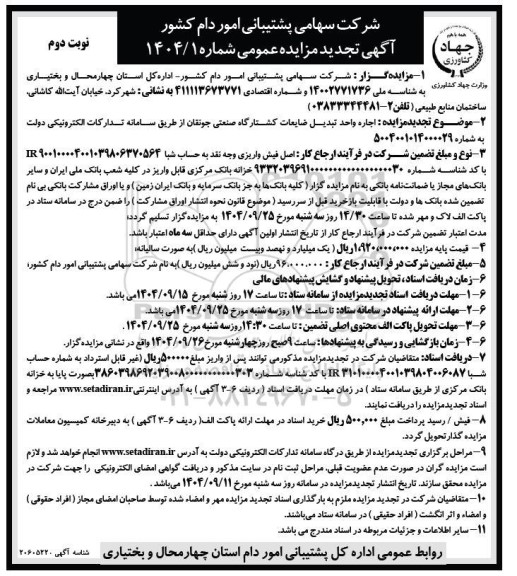 شرکت سهامی پشتیبانی امور دام کشور
آگهی تجدید مزایده عمومی شماره ۱۴۰۴/۱
نوبت دوم
همه با هم
جهاد
کشاورزی
وزارت جهاد کشاورزی
۱-مزایده‌گـــزار : شــرکت ســهامی پشــتیبانی امــور دام کشــور- اداره‌کل استان چهارمحـال و بختیـاری
به شناسه ملی ۱۴۰۰۲۷۷۱۷۳۶ و شماره اقتصادی ۴۱۱۱۱۳۶۷۳۷۷۱ به نشانی : شهرکرد، خیابان آیت‌الله کاشانی،
ساختمان منابع طبیعی ( تلفن ۲-۰۳۸۳۳۳۴۴۴۸۱)
۲-موضــوع تجدیدمزایده : اجاره واحد تبدیــل ضایعات کشــتارگاه صنعتی جونقان از طریق سامانه تــدارکات الکترونیکی دولت
به شماره ۵۰۰۴۰۰۱۰۱۴۰۰۰۰۲۹
۳-نوع و مبلغ تضمین شــرکت در فرآیند ارجاع کار : اصل فیش واریزی وجه نقد به حساب شبا
با کد شناســه شــماره خزانه بانک مرکزی قابل واریز در کلیه شعب بانک ملی ایران و سایر
بانک‌های مجاز یا ضمانت‌نامه بانکی به نام مزایده گزار ( کلیه بانک‌ها به جز بانک سرمایه و بانک ایران زمین ) و یا اوراق مشارکت بانکی بی نام
تضمین شده بانک ها و دولت با قابلیت بازخرید قبل از سررسید ( موضوع قانون نحوه انتشار اوراق مشارکت ) را ضمن درج در سامانه ستاد در
پاکت الف لاک و مهر شده تا ساعت ۱۴/۳۰ روز سه شنبه مورخ ۱۴۰۴/۰۹/۲۵ به مزایده گزار تسلیم گردد؛
مدت اعتبار تضمین شرکت در فرآیند ارجاع کار از تاریخ انتشار اولین آگهی دارای حداقل سه ماه اعتبار باشد.
۴- قیمت پایه مزایده ۱،۹۲۰،۰۰۰،۰۰۰ریال ( یک میلیارد و نهصد وبیست میلیون ریال )به صورت سالیانه؛
۵-مبلغ تضمین شرکت در فرآیند ارجاع کار : ۹۶،۰۰۰،۰۰۰ریال (نود و شش میلیون ریال )به نام شرکت سهامی پشتیبانی امور دام کشور؛
۶-زمان دریافت اسناد ، تحویل پیشنهاد و گشایش پیشنهادهای مالی
۱-۶-مهلت دریافت اسناد تجدیدمزایده از سامانه ستاد :تا ساعت ۱۷ روز شنبه مورخ ۱۴۰۴/۰۹/۱۵ می باشد.
۲-۶-مهلت ارائه پیشنهاد در سامانه ستاد: تا ساعت ۱۷ روز سه شنبه مورخ ۱۴۰۴/۰۹/۲۵می باشد.
۳-۶-مهلت تحویل پاکت الف محتوی اصلی تضمین : تا ساعت ۱۴:۳۰ روز سه شنبه مورخ ۱۴۰۴/۰۹/۲۵ .
۴-۶-زمان بازگشایی و رسیدگی به پیشنهادها: ساعت ۹ صبح روز چهارشنبه مورخ ۱۴۰۴/۰۹/۲۶ واقع در نشانی مزایده‌گزار.
۷-دریافت اسناد: متقاضیان شرکت در تجدیدمزایده مذکورمی توانند پس از واریز مبلغ۵۰۰،۰۰۰ریال (غیر قابل استرداد به شماره حساب
شبا با کد شناســه شــماره بصورت پایا به خزانه
بانک مرکزی از طریق سامانه ستاد ) در زمان مهلت دریافت اسناد ( ردیف ۳-۶ آگهی ) به آدرس اینترنتی www.setadiran.ir مراجعه و
اسناد تجدیدمزایده را دریافت نمایند.
۸- فیش / رسید پرداخت مبلغ ۵۰۰،۰۰۰ ریال خرید اسناد در مهلت ارائه پاکت الف( ردیف ۳-۶ آگهی ) به دبیرخانه کمیسیون معاملات
مزایده گذارتحویل گردد.
۹-مراحل برگزاری تجدیدمزایده از طریق درگاه سامانه تدارکات الکترونیکی دولت به آدرس www.setadiran.ir انجام خواهد شد و لازم
است مزایده گران در صورت عدم عضویت قبلی، مراحل ثبت نام در سایت مذکور و دریافت گواهی امضای الکترونیکی را جهت شرکت در
مزایده محقق سازند. تاریخ انتشار تجدیدمزایده در سامانه روز سه شنبه مورخ ۱۴۰۴/۰۹/۱۱ می‌باشد .
۱۰-متقاضیان شرکت در تجدید مزایده ملزم به بارگذاری اسناد تجدید مزایده مهر و امضاء شده توسط صاحبان امضای مجاز ( افراد حقوقی )
و امضاء و اثر انگشت ( افراد حقیقی ) در سامانه ستاد می‌باشند.
۱۱- سایر اطلاعات و جزئیات مربوطه در اسناد مندرج می باشد.
شناسه آگهی ۲۰۶۰۵۲۲۰
روابط عمومی اداره کل پشتیبانی امور دام استان چهارمحال و بختیاری